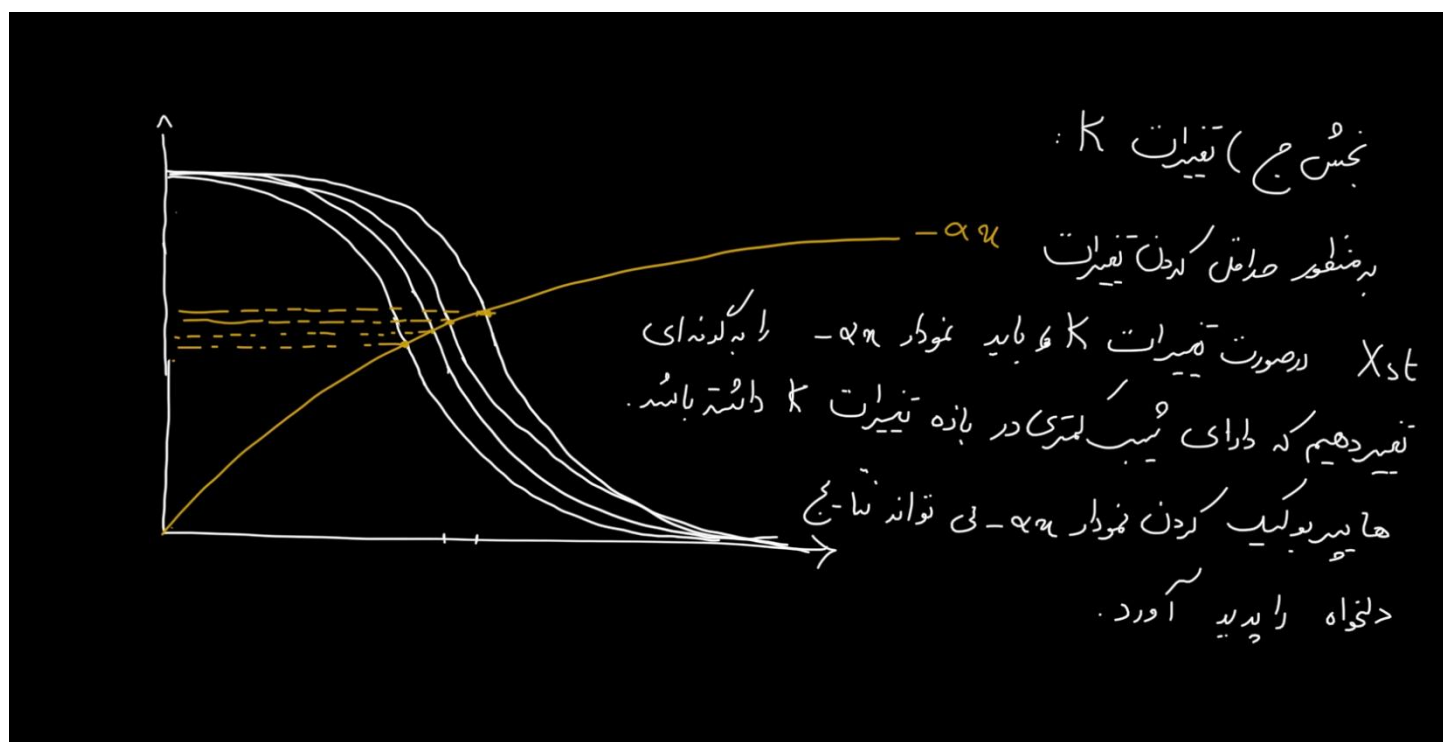 بخش ج ) تغییرات K :
به منظور حداقل کردن تغییرات
Xst درصورت تغییرات K باید نمودار -αx را به گونه ای
تغییر دهیم که دارای شیب کمتری در بازه تغییرات K داشته باشد.
هایپربولیک کردن نمودار -αx می تواند نتایج
دلخواه را پدید آورد.
-αx